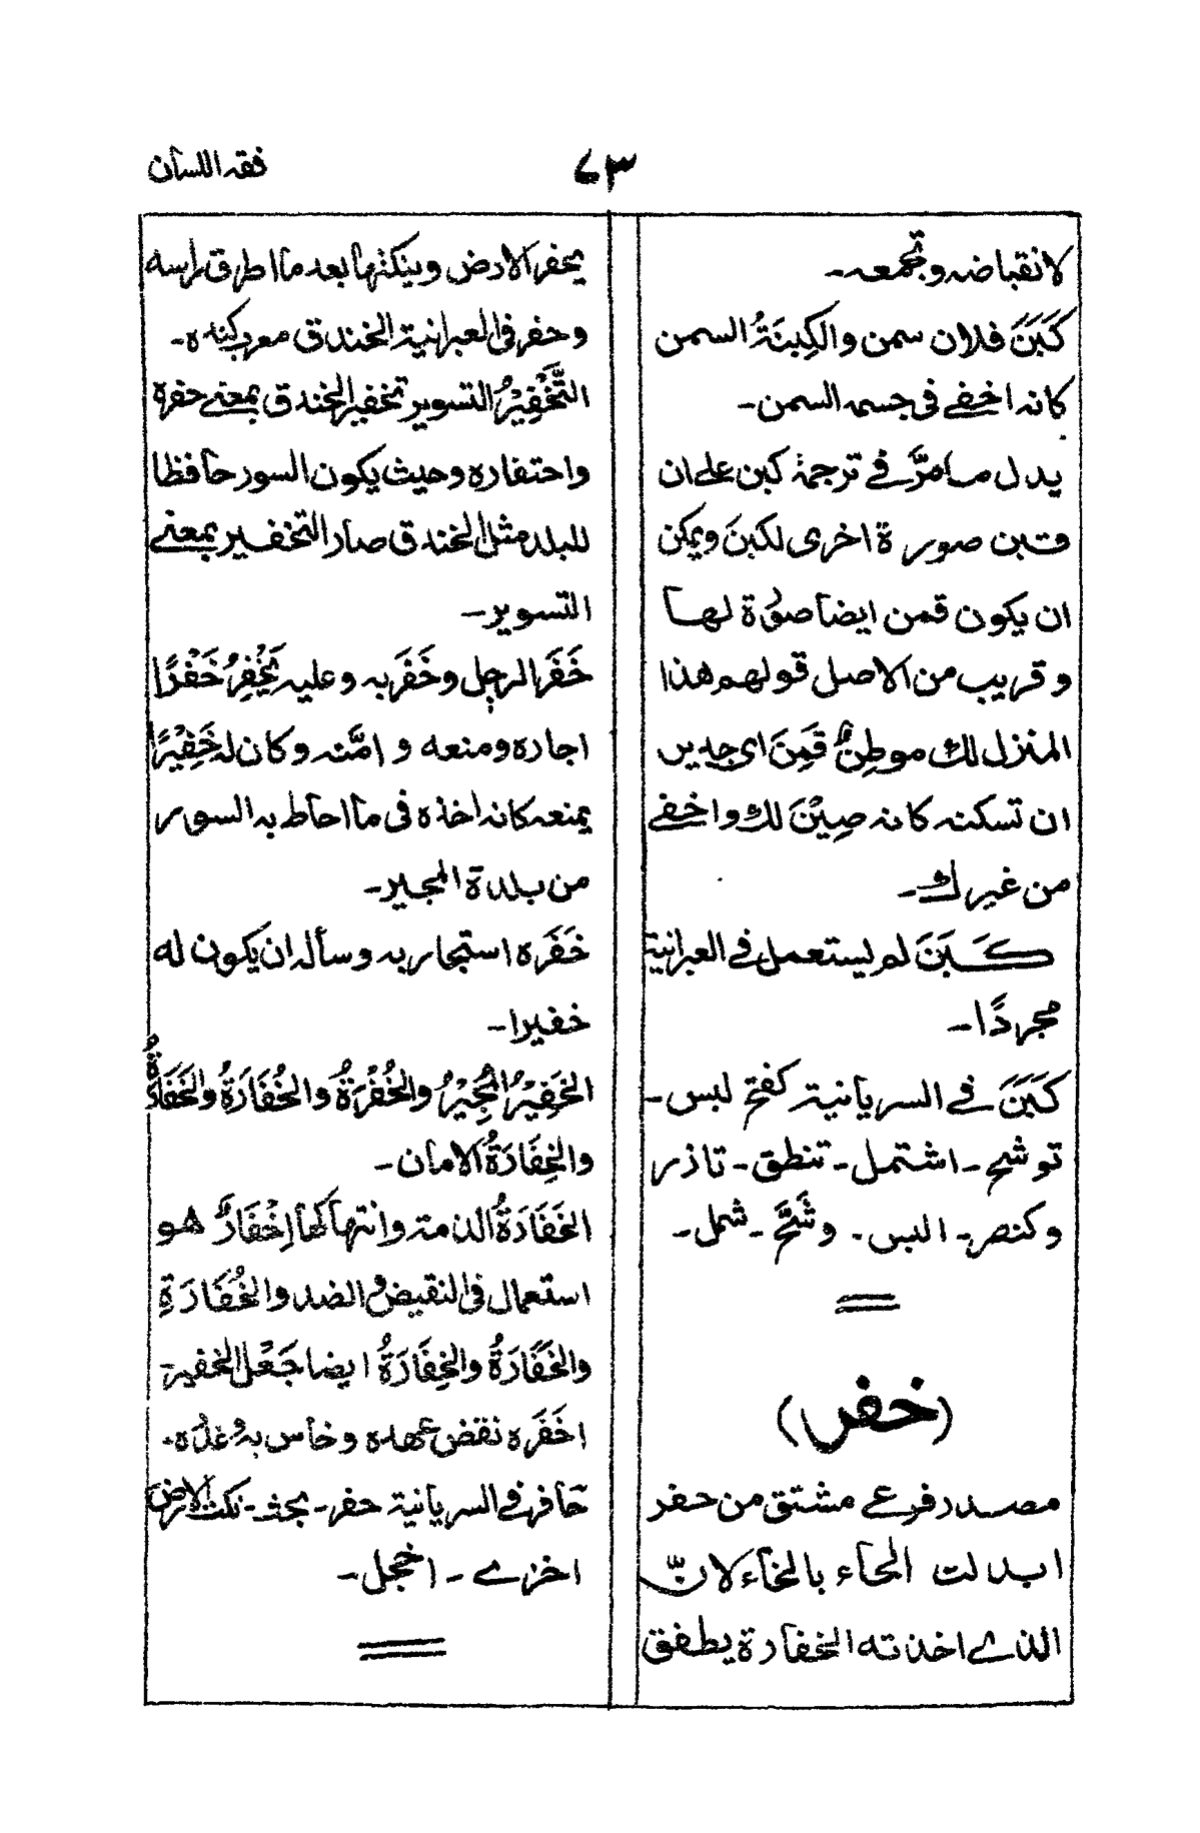 فقه اللسان
٧٣
لانقباضه وتجمعه۔
كَبَنَ فلان سمن والكِبنَةُ السمن
كانه اخفے فى جسمه السمن۔
يدل مامرَّ فے ترجمة كبن علے ان
قبن صورة اخرى لكبنَ ويمكن
ان يكون قمن ايضا صورة لها
وقريب من الاصل قولهم هذا
المنزل لك موطِنٌ قَمِنَ اى جدير
ان تسكنه كانه صِيْنَ لك واخفے
من غيرك۔
كَبَنَ لم يستعمل فے العبرانية
مجردًا۔
كَبَنَ فے السريانية كفتح لبس۔
توشح۔ اشتمل۔ تنطق۔ تاذر
وكنصر۔ البس۔ وشَّحَ۔ شمل۔
(خفر)
مصدر فرعے مشتق من حفر
ابدلت الحاء بالخاء لانّ
الذے اخذته الخفارة يطفق
يحفر الارض وينكتها بعد ما اطرق راسه
وحفر فى العبرانية الخندق معرب كنده۔
التَّخْفِيْرُ التسوير تخفير الخندق بمعنے حفره
واحتفاره وحيث يكون السور حافظا
للبلد مثل الخندق صار التخفير بمعنے
التسوير۔
خَفَرَ الرجل وخَفَرَ به وعليه يَخْفِرُ خَفْرًا
اجاره ومنعه و امَّنه وكان له خَفِيْرًا
يمنعه كانه اخذه فى ما احاط به السور
من بلدة المجير۔
خَفَره استجار به وسأله ان يكون له
خفيرا۔
الخَفِيْرُ المُجِيْرُ والخُفْرَةُ والخُفَارَةُ والخَفَارَةُ
والخِفَارَةُ الامان۔
الخَفَارَةُ الذمة وانتهاكها اِخْفَارٌ هو
استعمال فى النقيض والضد والخُفَارَةِ
والخَفَارَةُ والخِفَارَةُ ايضا جَعْل الخفير
اخفَره نقض عهده وخاس به وغدره۔
حافر فے السريانية حفر۔ بحث۔ نكت الارض
اخزے۔ اخجل۔